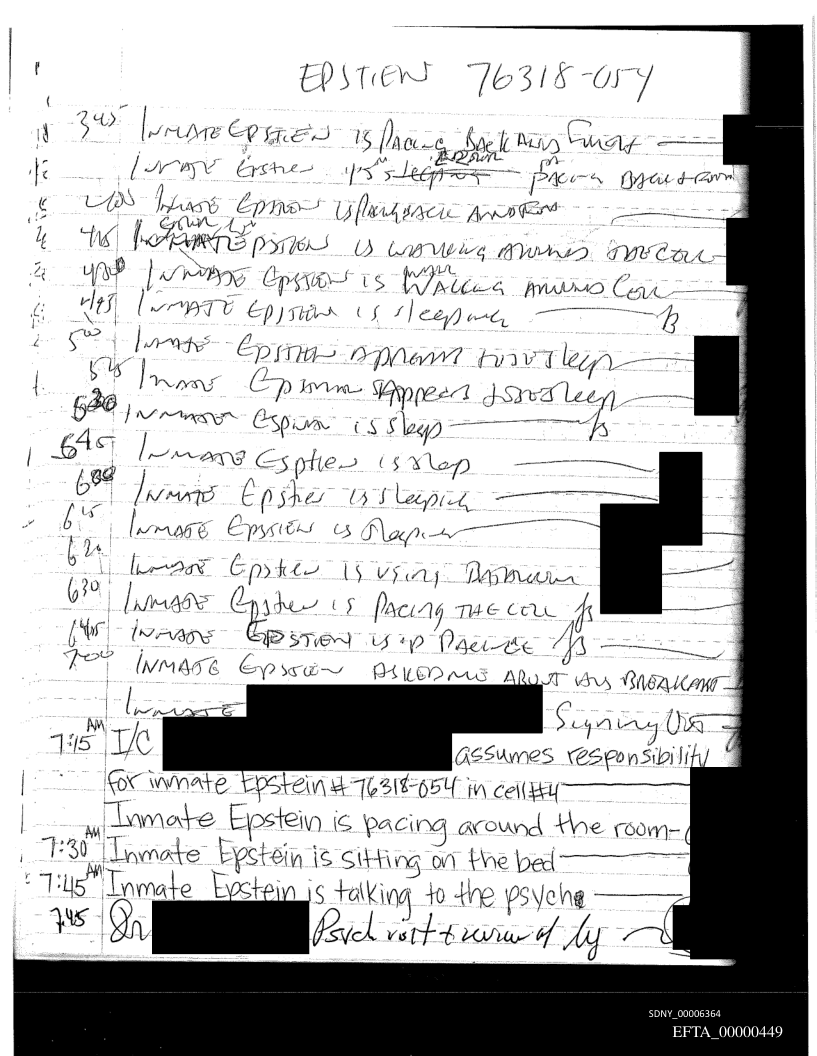 EPSTIEN 76318-054
345 INMATE EPSTIEN IS PACING BACK AND
INMATE Epstien is pacing BACK &
INMATE EPSTIEN IS PACING BACK AND
415 INMATE EPSTIEN IS WALKING AROUND THE CELL
430 INMATE EPSTIEN IS WALKING AROUND CELL
445 INMATE EPSTIEN IS sleeping B
500 INMATE EPSTIEN APPEARS sleep
515 INMATE Appears sleep
530 INMATE is sleep
645 INMATE Esptien is sleep
600 INMATE Epstien is sleeping
615 INMATE EPSTIEN is sleeping
620 INMATE Epstien IS USING BATHROOM
630 INMATE Epstien IS PACING THE CELL
645 INMATE EPSTIEN IS
700 INMATE EPSTIEN ASKED ME ABOUT HIS BREAKFAST
INMATE Signing Out
7:15 AM I/C assumes responsibility
for inmate Epstein # 76318-054 in cell #4
Inmate Epstein is pacing around the room-
7:30 AM Inmate Epstein is sitting on the bed
7:45 AM Inmate Epstein is talking to the psyche
7:45 Dr Psych visit & review of log
SDNY_00006364
EFTA_00000449